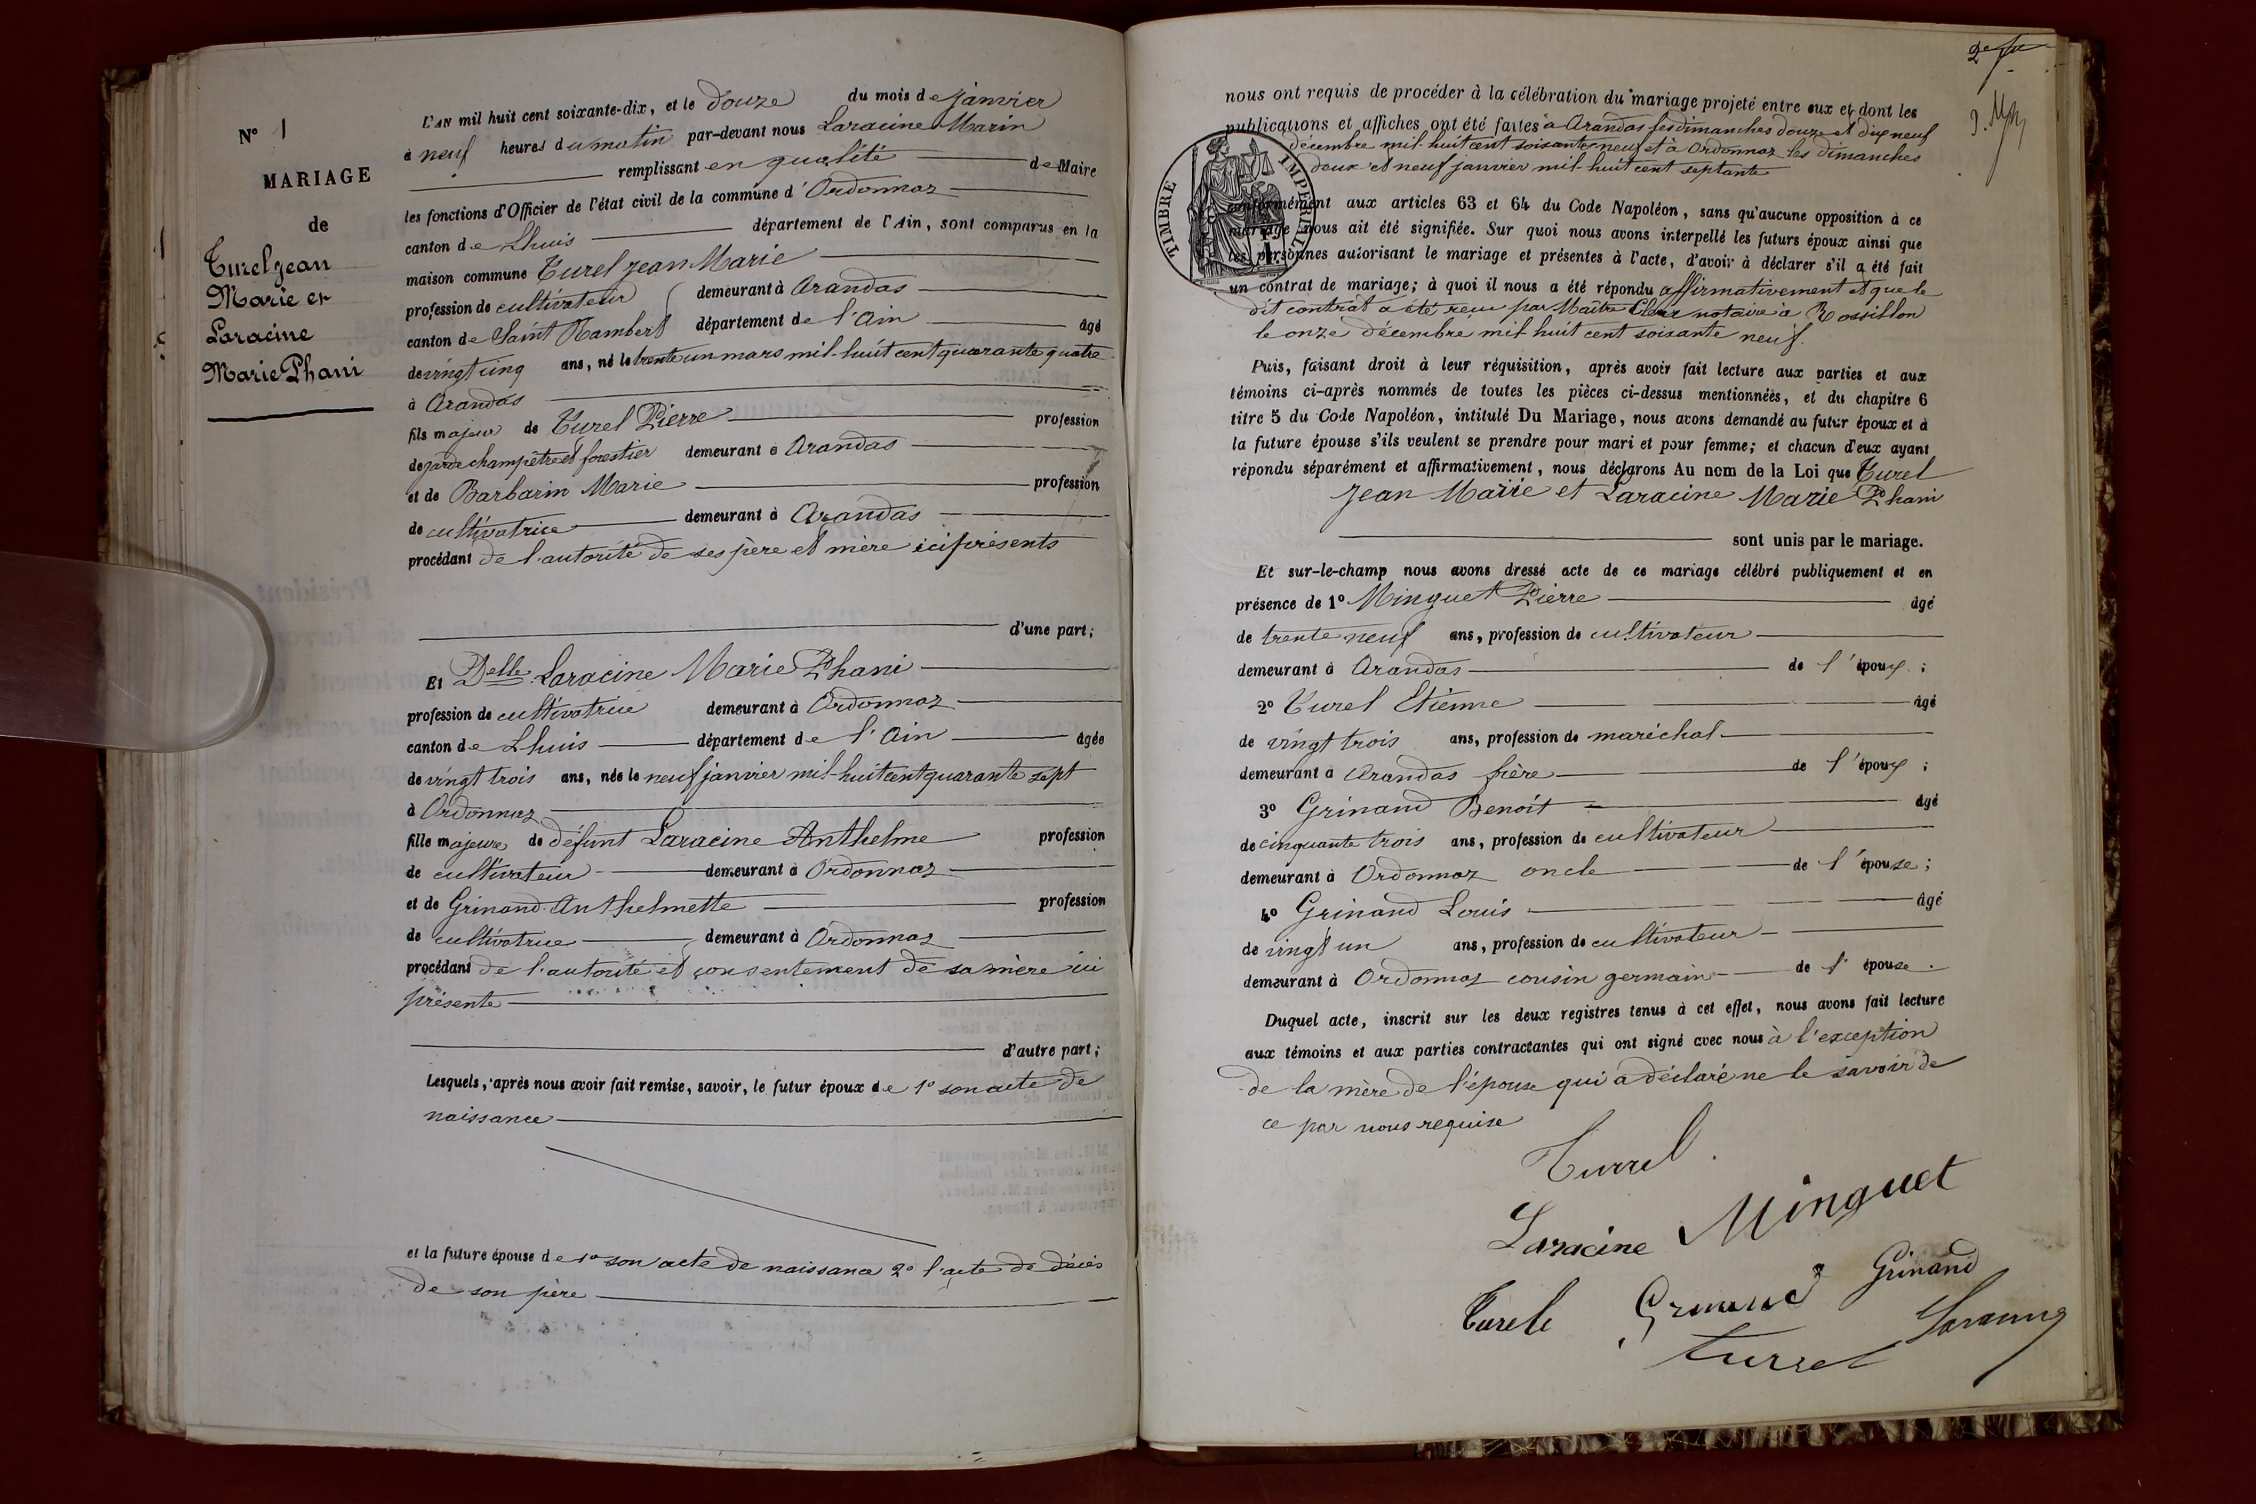 N° 1
MARIAGE
de
Turel Jean
Marie et
Laracine
Marie Phani
L'AN mil huit cent soixante-dix, et le douze du mois de janvier
à neuf heures du matin par-devant nous Laracine Marin
remplissant en qualité de Maire
les fonctions d'Officier de l'état civil de la commune d'Ordonnaz
canton de Lhuis département de l'Ain, sont comparus en la
maison commune Turel Jean Marie
profession de cultivateur demeurant à Arandas
canton de Saint Rambert département de l'Ain âgé
de vingt cinq ans, né le trente un mars mil-huit cent quarante quatre
à Arandas
fils majeur de Turel Pierre profession
de garde champêtre et forestier demeurant à Arandas
et de Barbarin Marie profession
de cultivatrice demeurant à Arandas
procédant de l'autorité de ses père et mère ici présents
d'une part;
Et Delle Laracine Marie Phani
profession de cultivatrice demeurant à Ordonnaz
canton de Lhuis département de l'Ain âgée
de vingt trois ans, née le neuf janvier mil-huit cent quarante sept
à Ordonnaz
fille majeure de défunt Laracine Anthelme profession
de cultivateur demeurant à Ordonnaz
et de Grinand Anthelmette profession
de cultivatrice demeurant à Ordonnaz
procédant de l'autorité et consentement de sa mère ici
présente
d'autre part;
Lesquels, après nous avoir fait remise, savoir, le futur époux de 1° son acte de
naissance
et la future épouse de 1° son acte de naissance 2° l'acte de décès
de son père
2e
nous ont requis de procéder à la célébration du mariage projeté entre eux et dont les
publications et affiches ont été faites à Arandas les dimanches douze et dix neuf
décembre mil-huit cent soixante neuf et à Ordonnaz les dimanches
deux et neuf janvier mil-huit cent septante
TIMBRE IMPERIAL
conformément aux articles 63 et 64 du Code Napoléon, sans qu'aucune opposition à ce
mariage nous ait été signifiée. Sur quoi nous avons interpellé les futurs époux ainsi que
les personnes autorisant le mariage et présentes à l'acte, d'avoir à déclarer s'il a été fait
un contrat de mariage; à quoi il nous a été répondu affirmativement et que le
dit contrat a été reçu par Maître notaire à Rossillon
le onze décembre mil huit cent soixante neuf.
Puis, faisant droit à leur réquisition, après avoir fait lecture aux parties et aux
témoins ci-après nommés de toutes les pièces ci-dessus mentionnées, et du chapitre 6
titre 5 du Code Napoléon, intitulé Du Mariage, nous avons demandé au futur époux et à
la future épouse s'ils veulent se prendre pour mari et pour femme; et chacun d'eux ayant
répondu séparément et affirmativement, nous déclarons Au nom de la Loi que Turel
Jean Marie et Laracine Marie Phani
sont unis par le mariage.
Et sur-le-champ nous avons dressé acte de ce mariage célébré publiquement et en
présence de 1° Minguet Pierre âgé
de trente neuf ans, profession de cultivateur
demeurant à Arandas de l'époux;
2° Turel Etienne âgé
de vingt trois ans, profession de maréchal
demeurant à Arandas frère de l'époux;
3° Grinand Benoît âgé
de cinquante trois ans, profession de cultivateur
demeurant à Ordonnaz oncle de l'épouse;
4° Grinand Louis âgé
de vingt un ans, profession de cultivateur
demeurant à Ordonnaz cousin germain de l'épouse.
Duquel acte, inscrit sur les deux registres tenus à cet effet, nous avons fait lecture
aux témoins et aux parties contractantes qui ont signé avec nous à l'exception
de la mère de l'épouse qui a déclaré ne le savoir de
ce par nous requise
Turrel.
Laracine Minguet
Turele Grinand Grinand
Turrel Laracine